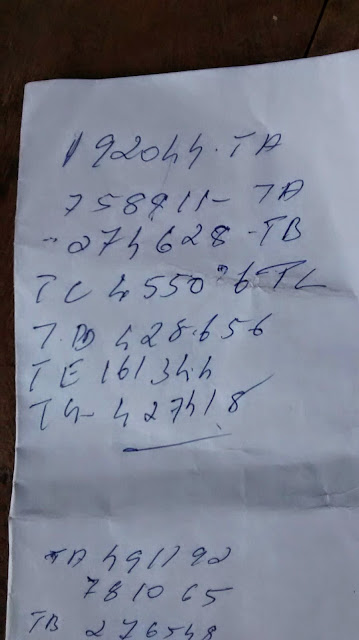 192044. TA
758911- TA
274628-TB
TC 4550 6 TC
T.D 428.656
TE 161344
TG- 427418
TA 491192
781065
TB 276548